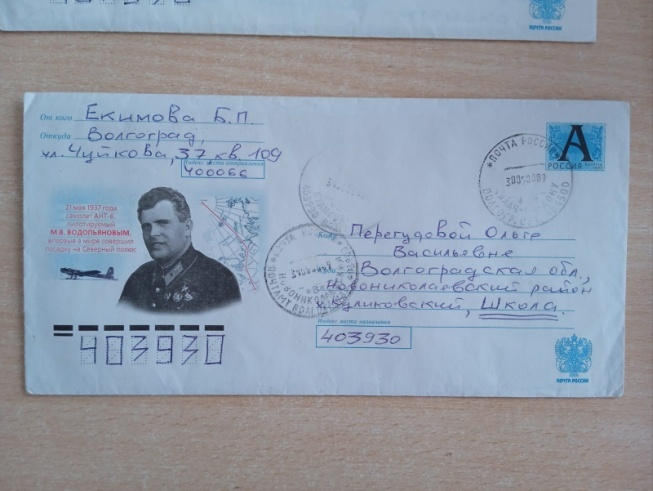 403930
ПОЧТА РОССИИ
От кого Екимова Б.П.
Откуда Волгоград,
ул. Чуйкова, 37 кв. 109
Индекс места отправления
400066
А
РОССИЯ
ПОЧТА РОССИИ
21 мая 1937 года
самолет АНТ-6,
пилотируемый
М.В. ВОДОПЬЯНОВЫМ,
впервые в мире совершил
посадку на Северный полюс
Кому Перегудовой Ольге
Васильевне
Волгоградская обл.,
Новониколаевский район
х. Куликовский, Школа.
Индекс места назначения
403930
403930
ПОЧТА РОССИИ